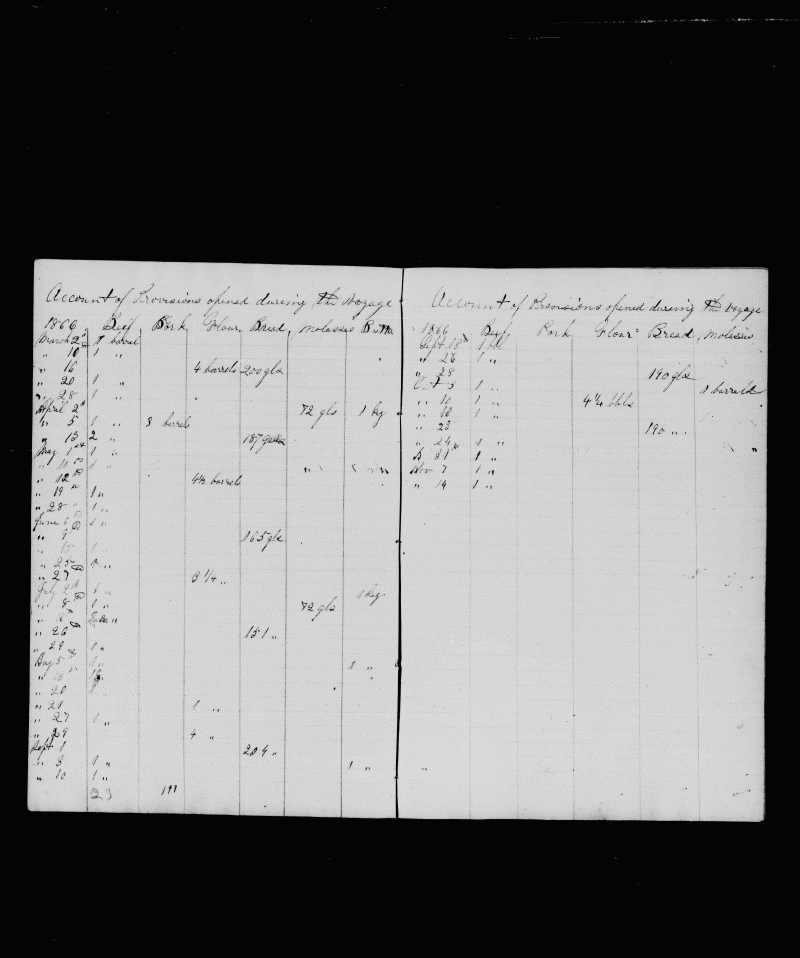 Account of Provisions opened dureing the Voyage
1866 Beef Pork Flour Bread, molasses Butter
March 2d 1 barrel
" 10 1 "
" 16 4 barrels 200 gls
" 20 1 "
" 28 1 "
April 2d 72 gls 1 kg
" 5 1 " 3 barrels
" 13 2 " 187
May 1st 1 "
" 10 1 "
" 12 4½ barrels
" 19 1 "
" 28 1 "
June 6 1 "
" 9 165 gls
" 15 1
" 25 1 "
" 27 3 1/4 "
July 2d 1 " 1 kg
" 8 1 " 72 gls
" "
" 26 151 "
" 29 1 "
Aug 5 1 " 1 "
" 13
" 20 1
" 21 1 "
" 27 1 "
" 29 4 "
Sept 1 204 "
" 3 1 " 1 "
" 10 1 "
23 111
Account of Provisions opened dureing the Voyage
1866 Beef Pork Flour Bread, molasses
Sept 18th 1 bbl
" 26 1 "
" 28 190 gls
Oct 3 1 " 1 barrel
" 10 1 " 4 1/4 bbls
" 18 1 "
" 23 190 "
" 24 1 "
" 31 1 "
Nov 7 1 "
" 14 1 "